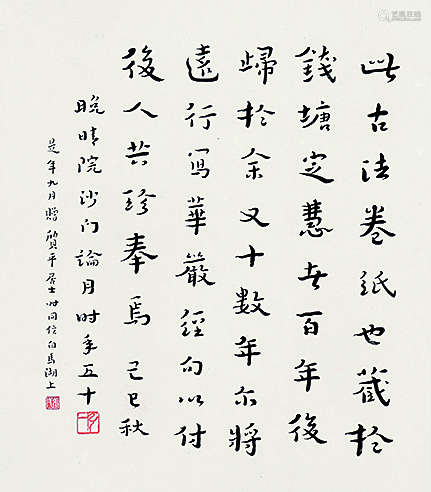 此古法卷紙也藏於
錢塘定慧寺百年後
歸於余又十數年尔將
遠行寫華嚴經句以付
後人共珍奉焉己巳秋
晚晴院沙门論月时年五十
是年九月贈質平居士时同住白馬湖上